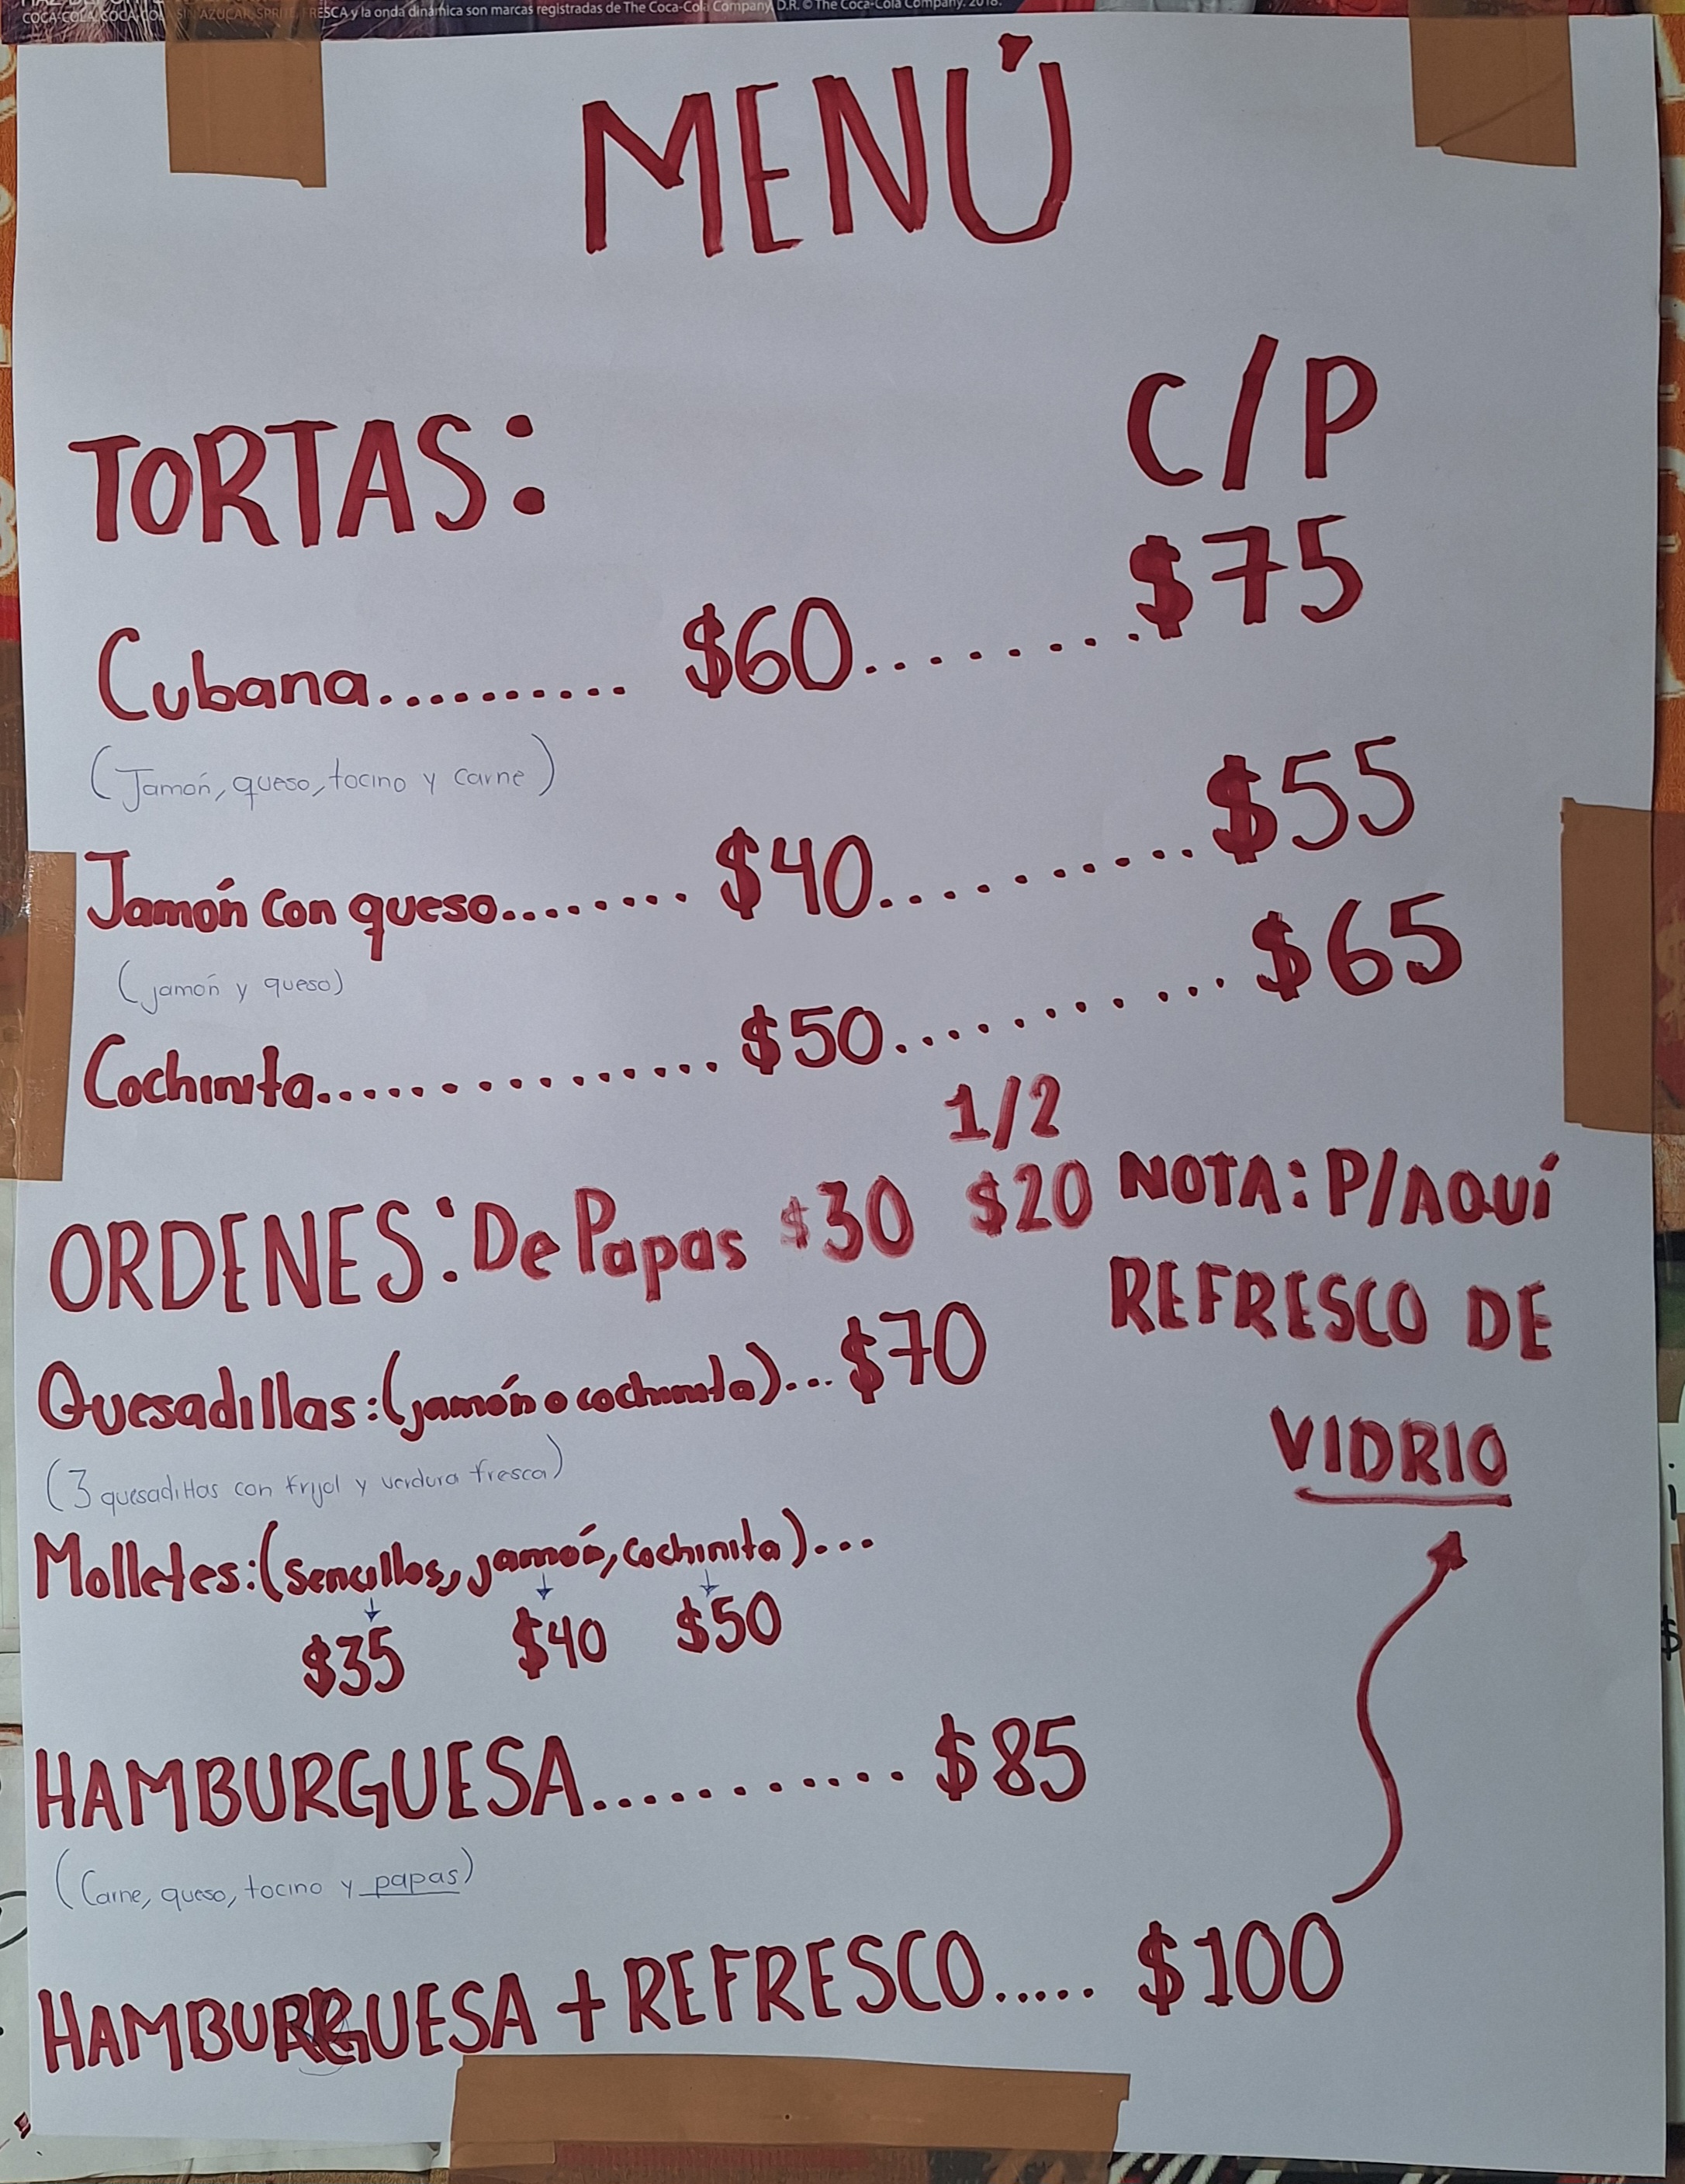 COCA-COLA, COCA-COLA SIN AZÚCAR, SPRITE, FRESCA y la onda dinámica son marcas registradas de The Coca-Cola Company, D.R. © The Coca-Cola Company. 2018.
MENÚ
TORTAS: C/P
Cubana.......... $60........$75
(Jamón, queso, tocino y carne)
Jamón con queso........$40..........$55
(jamón y queso)
Cochinita...............$50..........$65
1/2
ORDENES: De Papas $30 $20
Quesadillas: (jamón o cochinita)...$70
(3 quesadillas con frijol y verdura fresca)
Molletes: (sencillos, jamón, cochinita)...
$35 $40 $50
NOTA: P/AQUÍ
REFRESCO DE
VIDRIO
HAMBURGUESA...........$85
(Carne, queso, tocino y papas)
HAMBURGUESA + REFRESCO..... $100